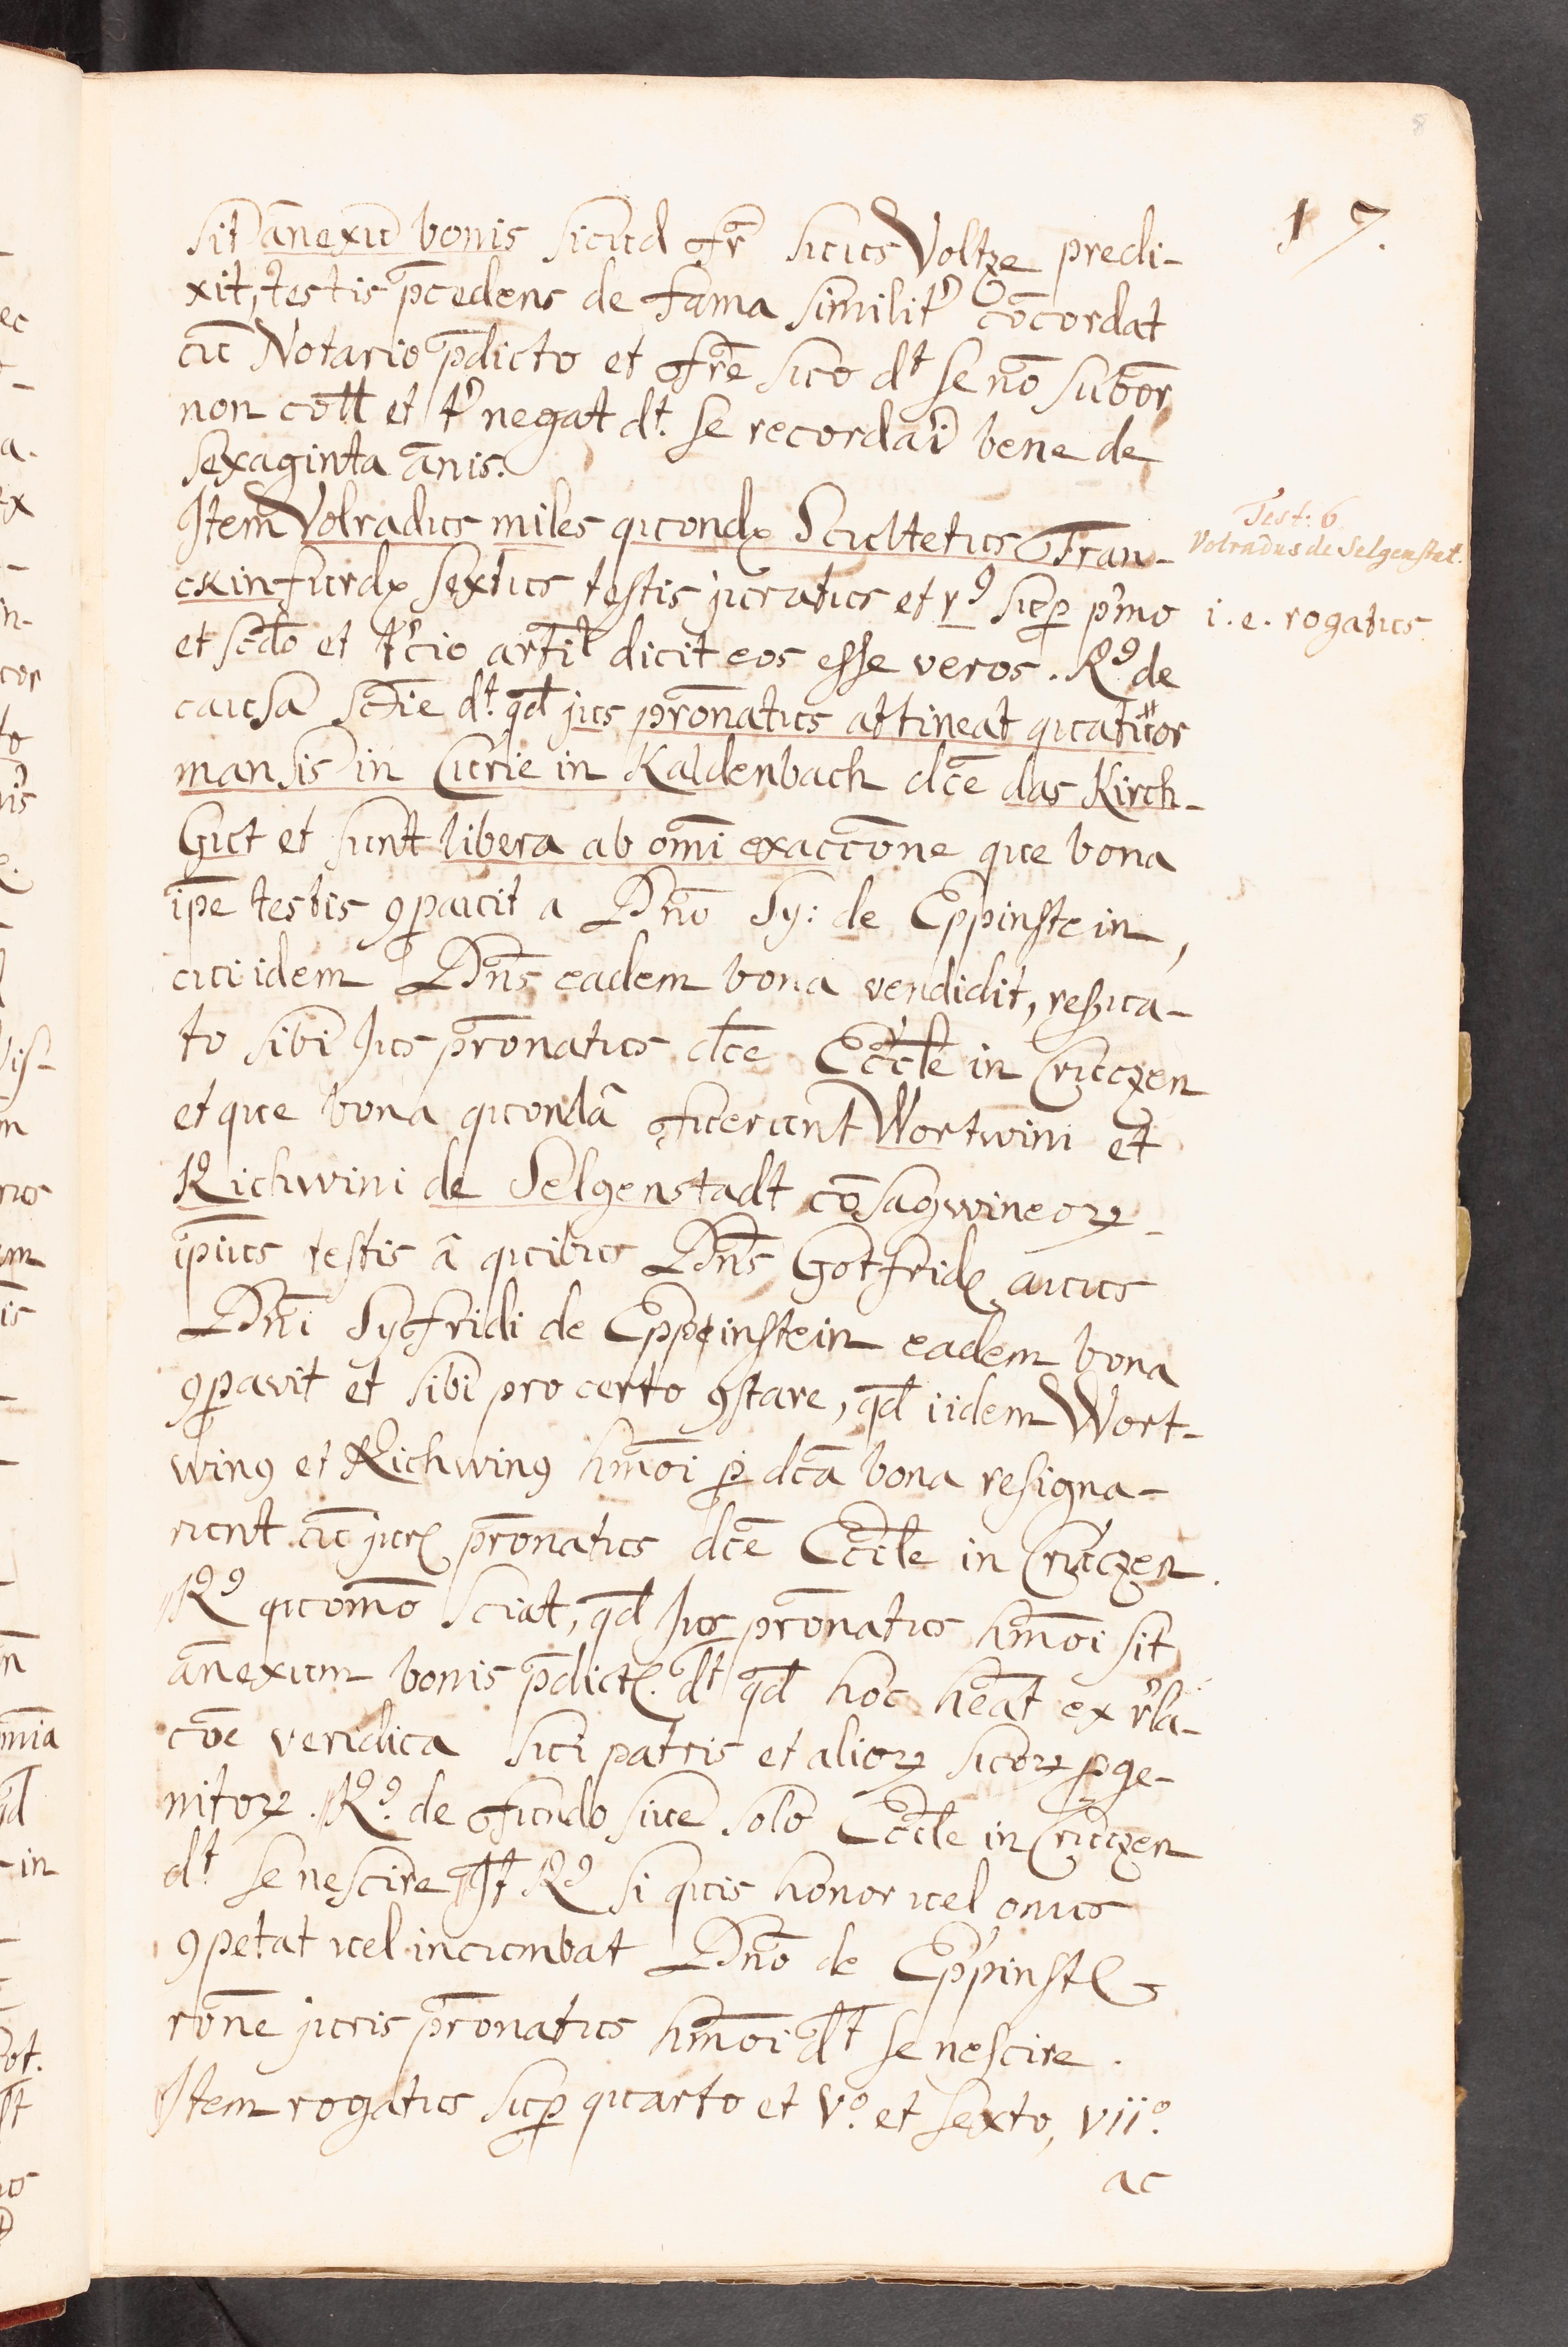 17.
sit añexū bonis sicud fr̄ suus Voltze predi-
xit, testis p̄cedens de fama similit᾿ cōcordat
cū Notario p̄dicto et fr̄e suo dt̄ se nō subōr
non coll et t᾿ negat dt̄. se recordari bene de
sexaginta ānis.
Item Volradus miles quondꝫ Scultetus Fran-
ckinfurdꝫ sextus testis juratus et rꝰ suꝑ p᾿mo
et scd̄o et t᾿cio artīl dicit eos esse veros. Rꝰ de
causa scīe dt̄. qd̄ jus pr̄onatus attineat quatuor
mansis in Curie in Kaldenbach dc̄e das Kirch-
Gut et sunt libera ab om̄i exaccōne que bona
ip̄e testis ꝯparuit a Dn̄o Sy: de Eppinstein,
cui idem Dn̄s eadem bona vendidit, res̄ua-
to sibi Jus pr̄onatus dc̄e Eccl̄e in Cruczen
et que bona quondā fuerunt Wortwini et
Richwini de Selgenstadt cōsagwineoꝝ
ip̄ius testis ā quibus Dn̄s Gotfridꝫ auus
Dn̄i Syfridi de Eppinstein eadem bona
ꝯpavit et sibi pro certo ꝯstare, qd̄ iidem Wort-
winꝰ et Richwinꝰ hm̄oi p̱ dc̄a bona resigna-
runt cū jurꝭ pr̄onatus dc̄e Eccl̄e in Cruczen.
Rꝰ quomō sciat, qd̄ Jus pr̄onatus hm̄oi sit
ānexum bonis p̄dictꝭ. dt̄ qd̄ hoc hēat ex r᾿la-
cōe veridica sui patris et alioꝝ suoꝝ ꝓge-
nitoꝝ. Rꝰ. de fundo siue solo Eccl̄e in Cruczen
dt̄ se nescire It̄ Rꝰ si quis honor uel onus
ꝯpetat uel incumbat Dn̄o de Eppinstꝭ
rōne juris pr̄onatus hm̄oi dt̄ se nescire.
Item rogatus suꝑ quarto et vº. et sexto, viiº.
ac
Test: 6
Volradus de Selgenstat.
i. e. rogatus